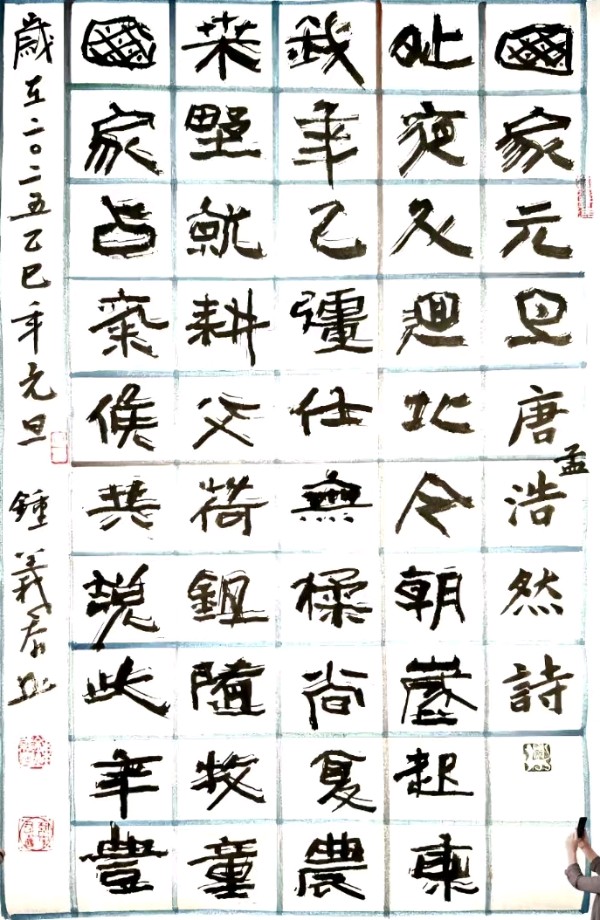 田家元旦唐孟浩然詩
昨夜斗迴北令朝歲起東
我年已彊仕無祿尚憂農
桒野就耕父荷鉏隨牧童
田家占氣候共說此年豐
歲在二〇二五乙巳年元旦 鍾義